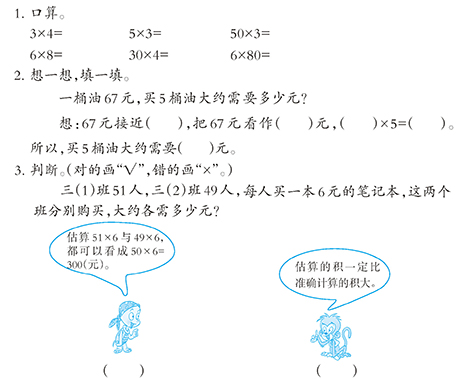 1. 口算。
3×4= 5×3= 50×3=
6×8= 30×4= 6×80=
2. 想一想,填一填。
一桶油67元,买5桶油大约需要多少元?
想:67元接近( ),把67元看作( )元,( )×5=( )。
所以,买5桶油大约需要( )元。
3. 判断。(对的画“√”,错的画“×”。)
三(1)班51人,三(2)班49人,每人买一本6元的笔记本,这两个
班分别购买,大约各需多少元?
估算51×6与49×6,
都可以看成50×6=
300(元)。
估算的积一定比
准确计算的积大。
( ) ( )